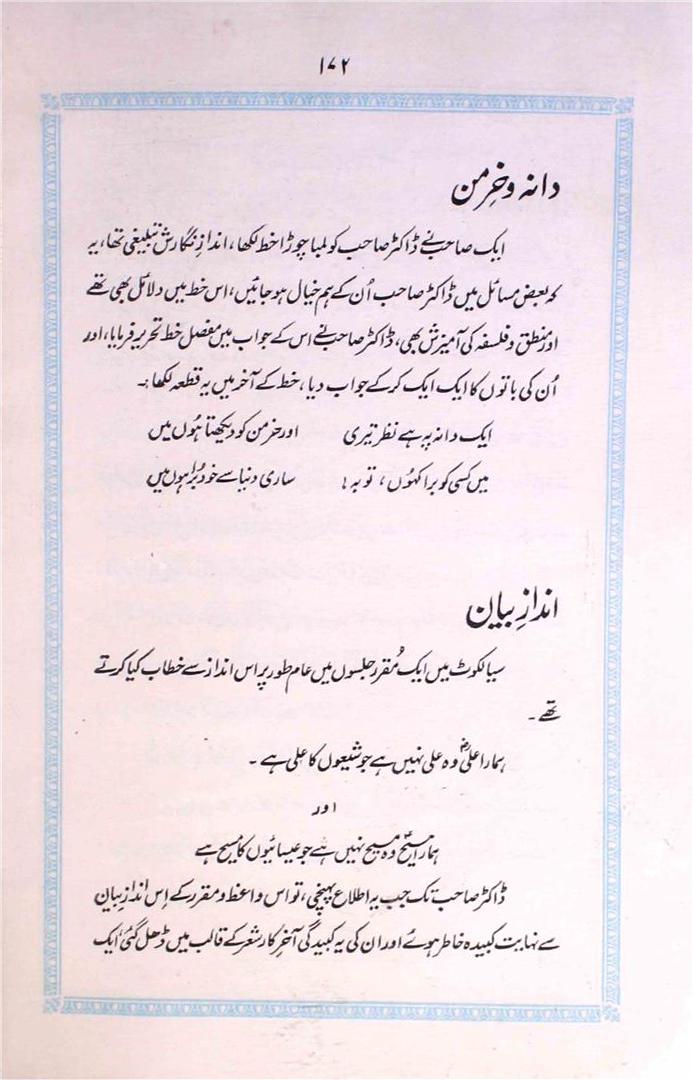 ۱۷۲
دانہ و خِرمن
ایک صاحب نے ڈاکٹر صاحب کو لمبا چوڑا خط لکھا، اندازِ نگارش تبلیغی تھا، یہ
کہ بعض مسائل میں ڈاکٹر صاحب اُن کے ہم خیال ہو جائیں، اس خط میں دلائل بھی تھے
اور منطق و فلسفہ کی آمیزش بھی، ڈاکٹر صاحب نے اس کے جواب میں مفصل خط تحریر فرمایا، اور
اُن کی باتوں کا ایک ایک کر کے جواب دیا، خط کے آخر میں یہ قطعہ لکھا:۔
ایک دانہ پہ ہے نظر تیری اور خرمن کو دیکھتا ہُوں میں
میں کسی کو برا کہوُں، توبہ! ساری دنیا سے خود بُرا ہوں میں
اندازِ بیان
سیالکوٹ میں ایک مُقرر جلسوں میں عام طور پر اس انداز سے خطاب کیا کرتے
تھے۔
ہمارا علیؓ وہ علی نہیں ہے جو شیعوں کا علی ہے۔
اور
ہمارا مسیحؑ وہ مسیح نہیں ہے جو عیسائیوں کا مسیح ہے
ڈاکٹر صاحب تک جب یہ اطلاع پہنچی، تو اس واعظ و مقرر کے اِس اندازِ بیان
سے نہایت کبیدہ خاطر ہوئے اور ان کی یہ کبیدگی آخرِ کار شعر کے قالب میں ڈھل گئی، ایک